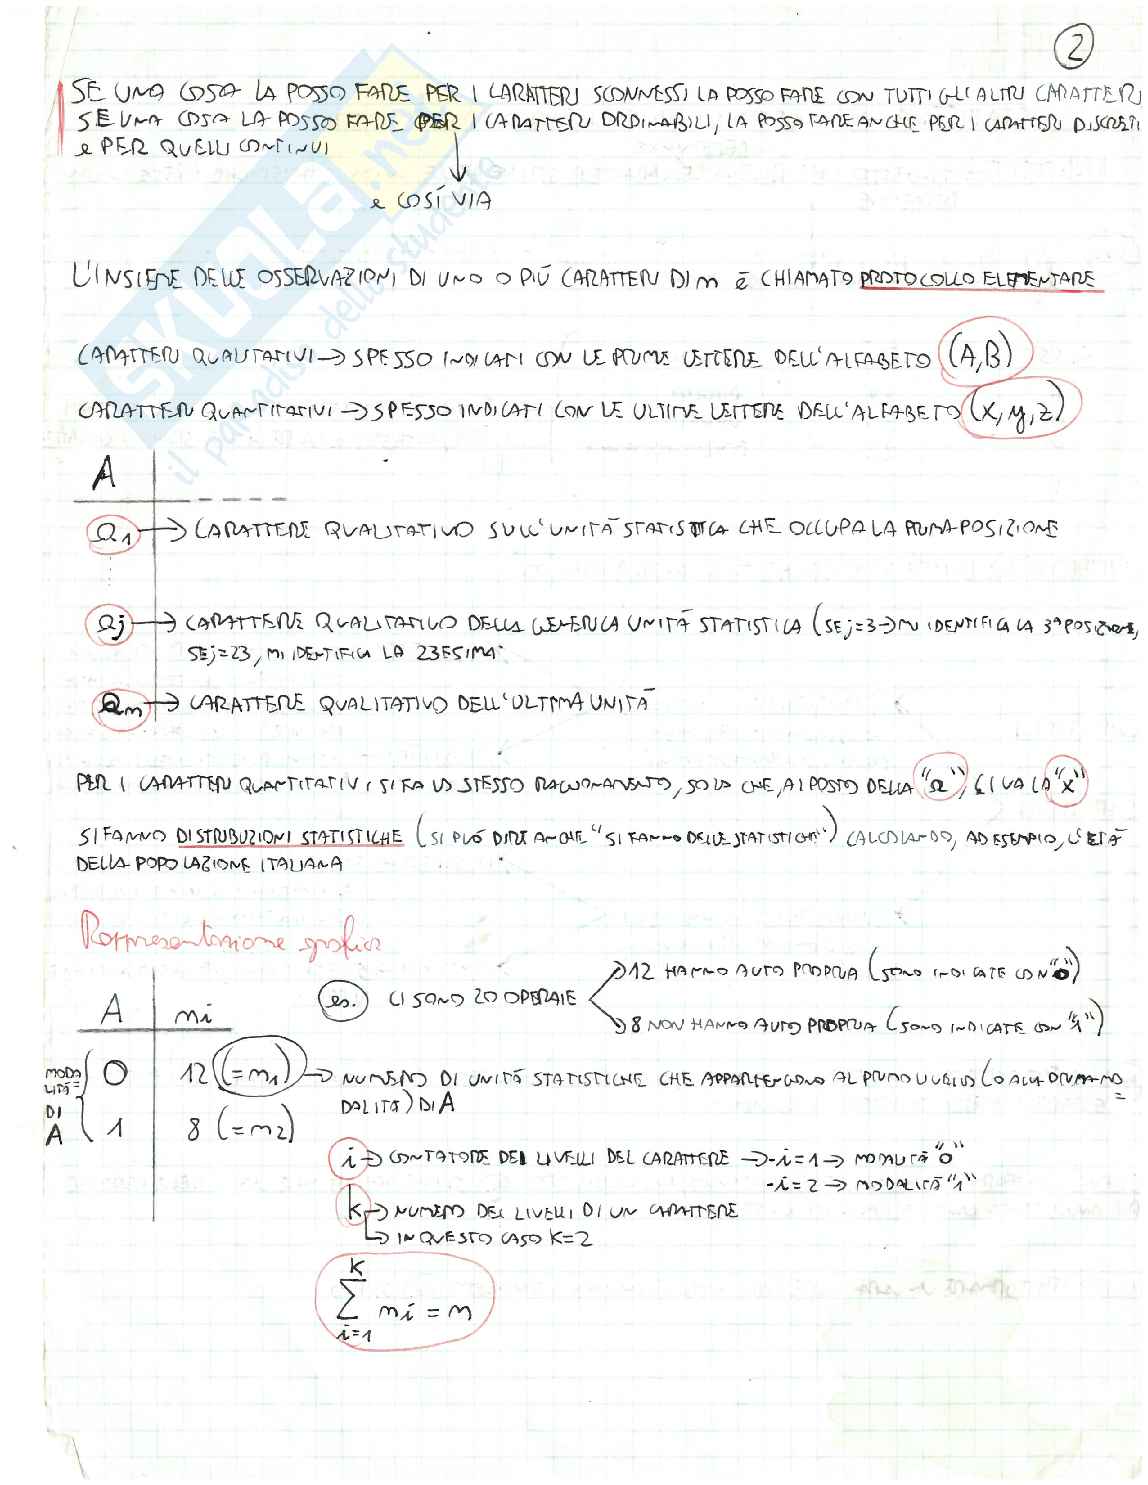 2
SE UNA COSA LA POSSO FARE PER I CARATTERI SCONNESSI LA POSSO FARE CON TUTTI GLI ALTRI CARATTERI
SE UNA COSA LA POSSO FARE PER I CARATTERI ORDINABILI, LA POSSO FARE ANCHE PER I CARATTERI DISCRETI
e PER QUELLI CONTINUI
e COSÍ VIA
L'INSIEME DELLE OSSERVAZIONI DI UNO O PIÚ CARATTERI DI n é CHIAMATO PROTOCOLLO ELEMENTARE
CARATTERI QUALITATIVI → SPESSO INDICATI CON LE PRIME LETTERE DELL'ALFABETO (A,B)
CARATTERI QUANTITATIVI → SPESSO INDICATI CON LE ULTIME LETTERE DELL'ALFABETO (x, y, z)
A
a1 → CARATTERE QUALITATIVO SULL'UNITÁ STATISTICA CHE OCCUPA LA PRIMA POSIZIONE
aj → CARATTERE QUALITATIVO DELLA GENERICA UNITÁ STATISTICA (SE j=3 → MI IDENTIFICA LA 3ª POSIZIONE,
SE j=23, MI IDENTIFICA LA 23ESIMA
an → CARATTERE QUALITATIVO DELL'ULTIMA UNITÁ
PER I CARATTERI QUANTITATIVI SI FA LO STESSO RAGIONAMENTO, SOLO CHE, AL POSTO DELLA "a", CI VA LA "x"
SI FANNO DISTRIBUZIONI STATISTICHE (SI PUÓ DIRE ANCHE "SI FANNO DELLE STATISTICHE") CALCOLANDO, AD ESEMPIO, L'ETÁ
DELLA POPOLAZIONE ITALIANA
Rappresentazione grafica
es. CI SONO 20 OPERAIE
→ 12 HANNO AUTO PROPRIA (SONO INDICATE CON "0")
→ 8 NON HANNO AUTO PROPRIA (SONO INDICATE CON "1")
A ni
MODALITÁ DI A
0 12 (=n1) → NUMERO DI UNITÁ STATISTICHE CHE APPARTENGONO AL PRIMO LIVELLO (O ALLA PRIMA MO=
DALITÁ) DI A
1 8 (=n2)
i → CONTATORE DEI LIVELLI DEL CARATTERE → -i=1 → MODALITÁ "0"
-i=2 → MODALITÁ "1"
k → NUMERO DEI LIVELLI DI UN CARATTERE
→ IN QUESTO CASO K=2
K
∑ ni = n
i=1
SKUOLA.net
il paradiso dello studente